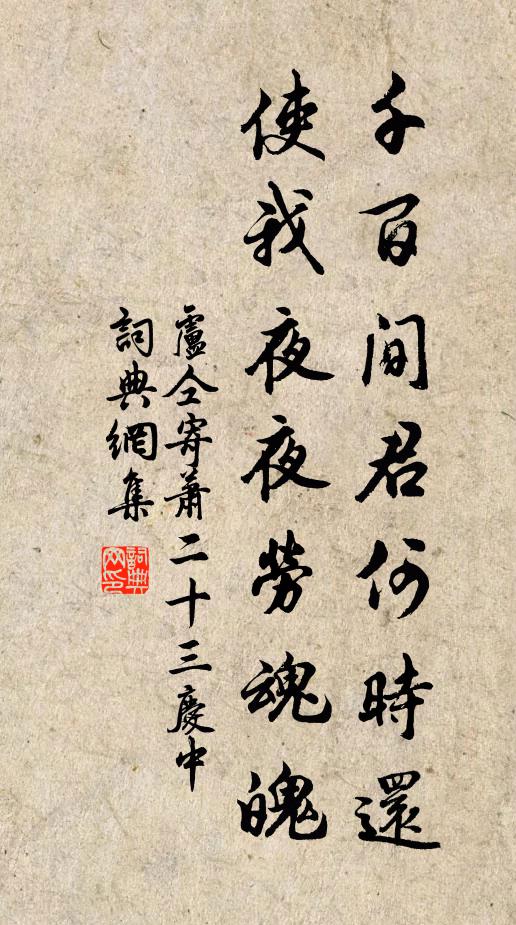 千百間君何時還
使我夜夜勞魂魄
盧仝寄蕭二十三慶中
詞典網集
詞典网印